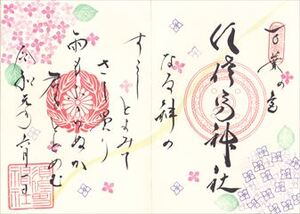 万葉の歌
神社
なる神の
すこしとよみて
さし曇り
雨もふらぬか
君をとどめむ
令和元年六月一日